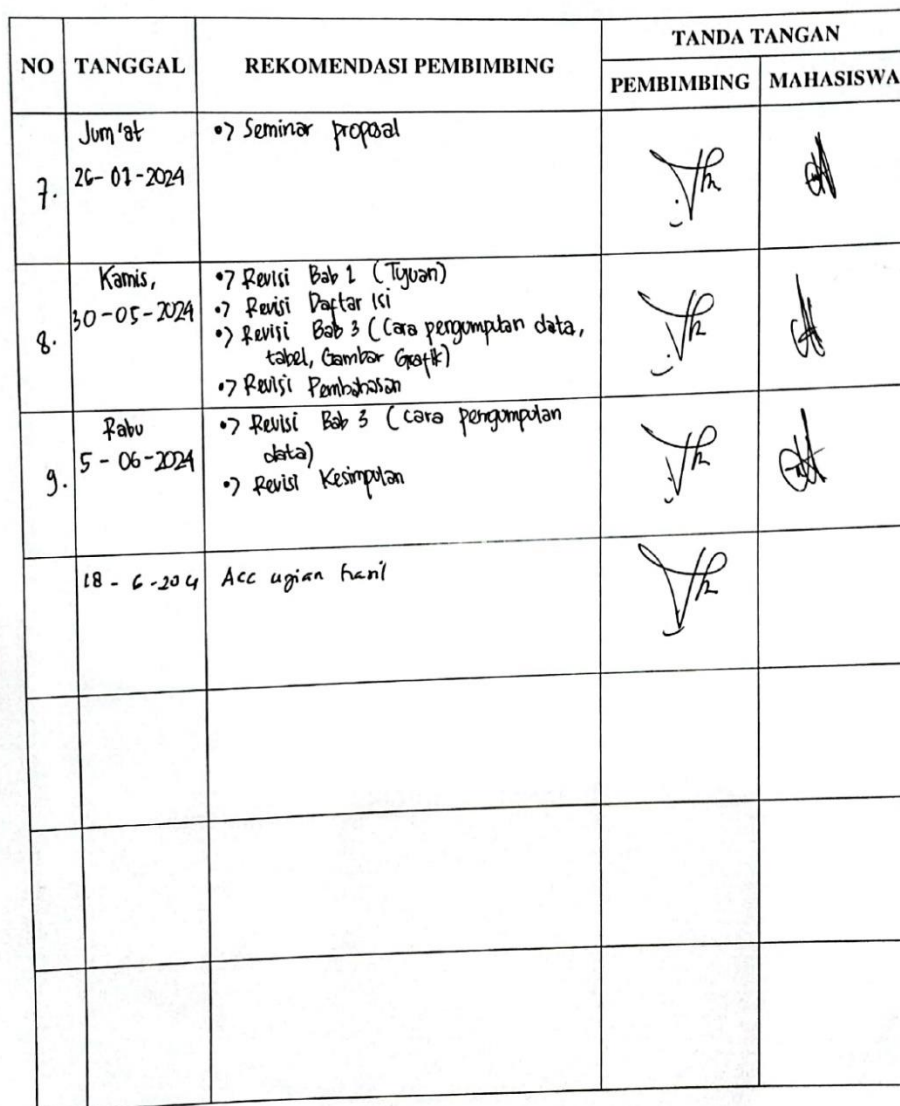 NO TANGGAL REKOMENDASI PEMBIMBING TANDA TANGAN
PEMBIMBING MAHASISWA
7. Jum'at
26-01-2024
•) Seminar proposal
8. Kamis,
30-05-2024
•) Revisi Bab 1 (Tujuan)
•) Revisi Daftar Isi
•) Revisi Bab 3 (Cara pengumpulan data,
tabel, Gambar Grafik)
•) Revisi Pembahasan
9. Rabu
5-06-2024
•) Revisi Bab 3 (cara pengumpulan
data)
•) Revisi Kesimpulan
18-6-204 Acc ujian hasil